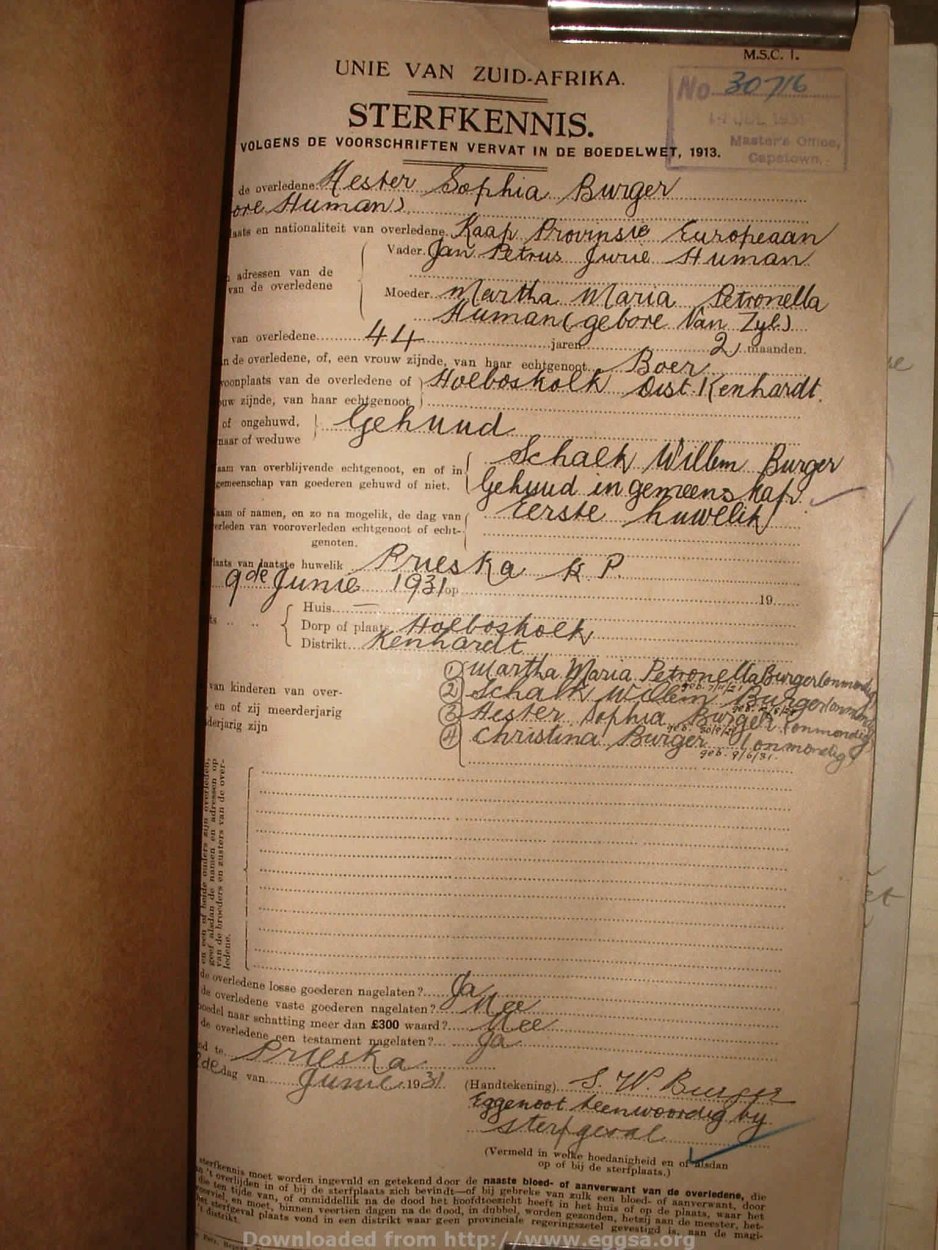 M.S.C. 1.
UNIE VAN ZUID-AFRIKA.
No. 30716
STERFKENNIS.
Master's Office,
Capetown.
VOLGENS DE VOORSCHRIFTEN VERVAT IN DE BOEDELWET, 1913.
de overledene Hester Sophia Burger
ore Human)
laats en nationaliteit van overledene Kaap Provinsie Europeaan
Vader Jan Petrus Jurie Human
adressen van de
van de overledene
Moeder Martha Maria Petronella
Human (gebore Van Zyl)
van overledene 44 jaren 2 maanden.
n de overledene, of, een vrouw zijnde, van haar echtgenoot Boer
woonplaats van de overledene of Holboskolk Dist. Kenhardt.
uw zijnde, van haar echtgenoot
of ongehuwd, Gehuud
naar of weduwe
aam van overblijvende echtgenoot, en of in Schalk Willem Burger
gemeenschap van goederen gehuwd of niet. Gehuud in gemeenskap
Naam of namen, en zo na mogelik, de dag van Eerste huwelik
verleden van vooroverleden echtgenoot of echt-
genoten.
laats van laatste huwelik Prieska K P.
9de Junie 1931 op 19
Huis —
Dorp of plaats Holboskolk
Distrikt Kenhardt
van kinderen van over-
en of zij meerderjarig
derjarig zijn
① Martha Maria Petronella Burger (onmondig
② Schalk Willem Burger (onmondig
③ Hester Sophia Burger (onmondig)
④ Christina Burger (onmondig)
geb. 9/6/31.
en een of beide ouders zijn overleden,
geef alsdan de namen en adressen op
van de broeders en zusters van de over-
ledene.
de overledene losse goederen nagelaten? Ja
de overledene vaste goederen nagelaten? Nee
boedel naar schatting meer dan £300 waard? Nee
de overledene een testament nagelaten? Ja
nd te Prieska
de dag van Junie 1931
(Handtekening) S. W. Burger
Eggenoot teenwoordig by
sterfgeval
(Vermeld in welke hoedanigheid en of alsdan
op of bij de sterfplaats.)
sterfkennis moet worden ingevuld en getekend door de naaste bloed- of aanverwant van de overledene, die
't overlijden in of bij de sterfplaats zich bevindt—of bij gebreke van zulk een bloed- of aanverwant, door
die ten tijde van, of onmiddellik na de dood het hoofdtoezicht heeft in het huis of op de plaats, waar het
voorviel, en moet, binnen veertien dagen na de dood, in dubbel, worden gezonden, hetzij aan de meester, het-
het sterfgeval plaats vond in een distrikt waar geen provinciale regeringszetel gevestigd is, aan de magi-
't distrikt.
Downloaded from http://www.eggsa.org